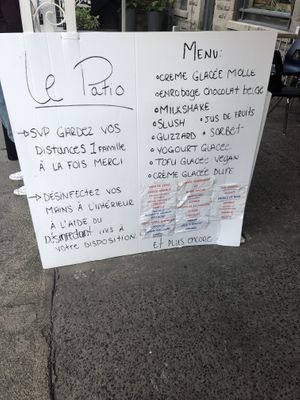 Le Patio
→ SVP GARDEZ VOS
DISTANCES 1 FAMILLE
À LA FOIS MERCI
→ DESINFECTEZ VOS
MAINS À L'INTÉRIEUR
À L'AIDE DU
Désinfectant mis à
VOTRE DISPOSITION
MENU:
• CREME GLACÉE MOLLE
• ENROBAGE CHOCOLAT belge
• MILKSHAKE
• SLUSH • JUS DE FRUITS
• GLIZZARD • SORBET
• YOGOURT GLACÉE
• TOFU GLACÉE VEGAN
• CRÈME GLACÉE DURE
ET PLUS ENCORE